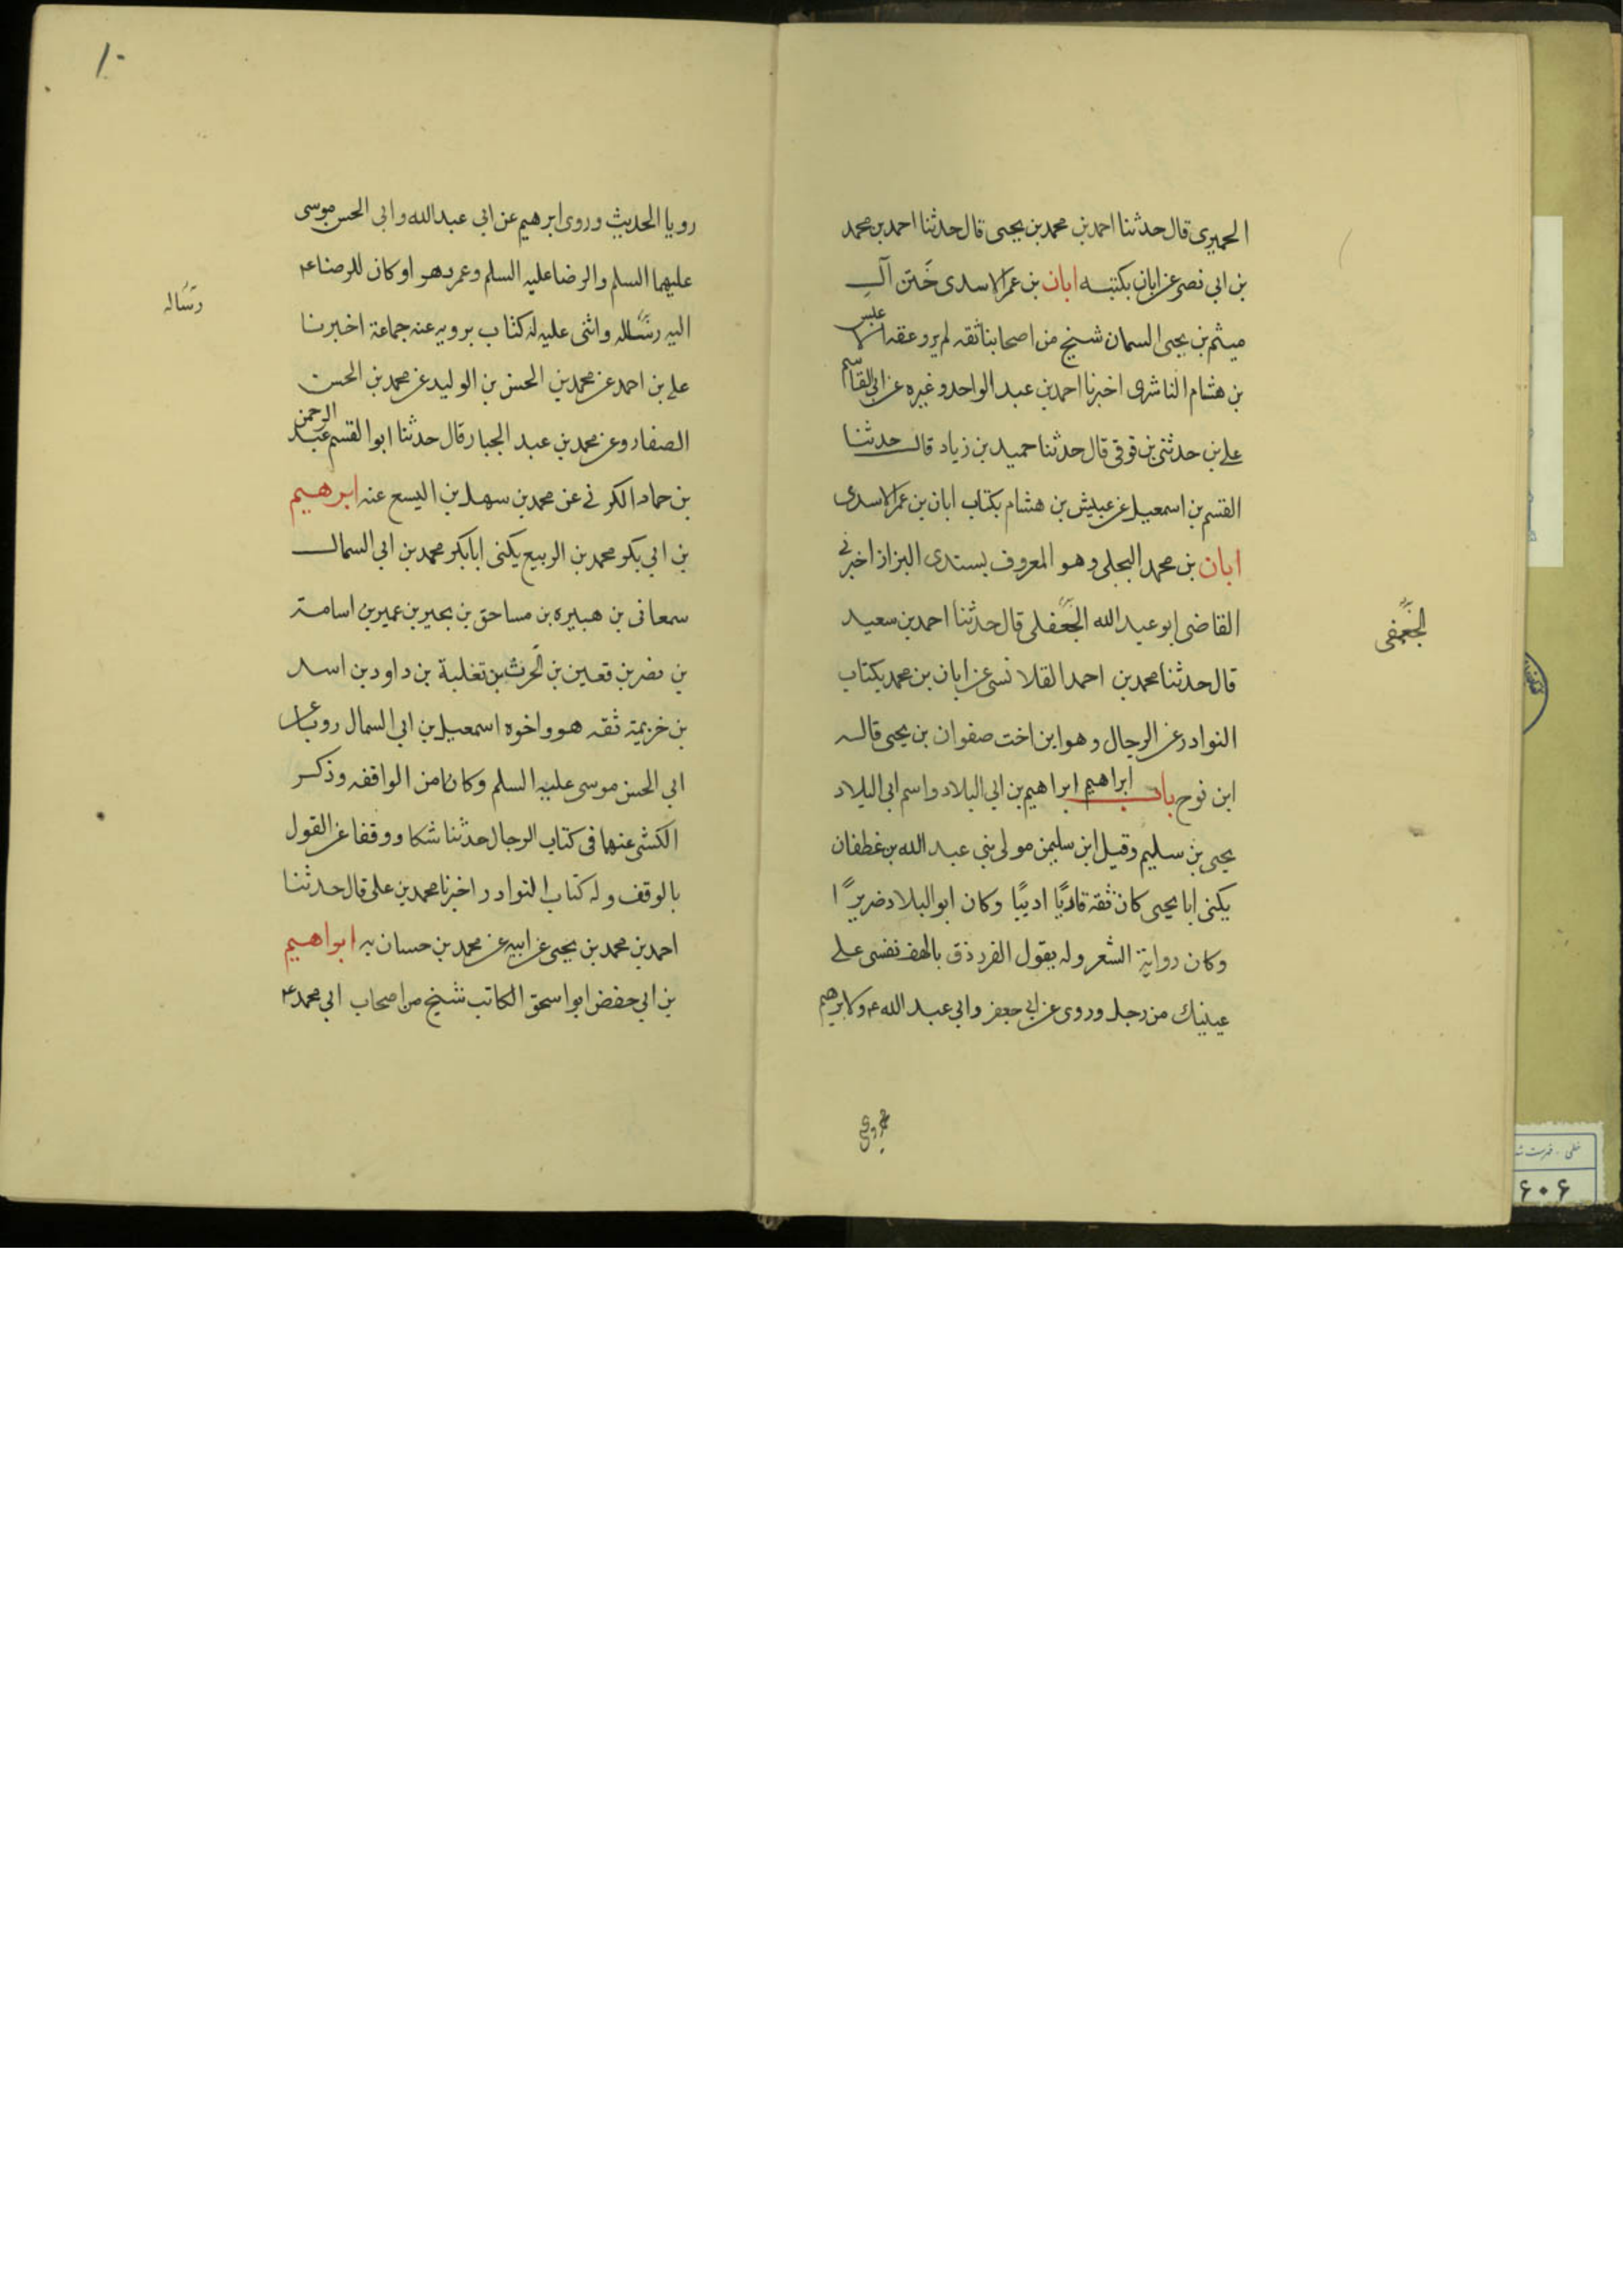 الحمیری قال حدثنا احمد بن محمد بن یحیی قال حدثنا احمد بن محمد
بن ابی نصر عن ابان بکتبه ابان بن عمر الاسدی ختن آل
میثم بن یحیی السمان شیخ من اصحابنا ثقه لم یرو عنه الا عبیس
بن هشام الناشری اخبرنا احمد بن عبد الواحد و غیره عن ابی القاسم
علی بن حدثنی بن قوقی قال حدثنا حمید بن زیاد قال حدثنا
القسم بن اسمعیل عن عبیش بن هشام بکتاب ابان بن عمر الاسدی
ابان بن محمد البجلی و هو المعروف بسندی البزاز اخبرنی
القاضی ابو عبد الله الجعفلی قال حدثنا احمد بن سعید
الجعفی
قال حدثنا محمد بن احمد القلانسی عن ابان بن محمد بکتاب
النوادر عن الرجال و هو ابن اخت صفوان بن یحیی قاله
ابن نوح باب ابراهیم ابراهیم بن ابی البلاد و اسم ابی البلاد
یحیی بن سلیم و قیل ابن سلیمن مولی بنی عبد الله بن غطفان
یکنی ابا یحیی کان ثقة قاریًا ادیبًا و کان ابو البلاد ضریرًا
و کان روایة الشعر و له یقول الفرزدق یالهف نفسی علی
عینیك من رجل و روی عن ابی جعفر و ابی عبد الله ع و لابرهیم
۱۰
رویا الحدیث و روی ابرهیم عن ابی عبد الله و ابی الحسن موسی
علیهما السلم و الرضا علیه السلم و عمر دهرا و کان للرضا ع
الیه رساله و اثنی علیه له کتاب یرویه عنه جماعة اخبرنا
رساله
علی بن احمد عن محمد بن الحسن بن الولید عن محمد بن الحسن
الصفار و عن محمد بن عبد الجبار قال حدثنا ابو القسم عبد الرحمن
بن حماد الکوفی عن محمد بن سهل بن الیسع عنه ابرهیم
بن ابی بکر محمد بن الربیع یکنی ابا بکر محمد بن ابی السمال
سمعان بن هبیره بن مساحق بن بجیر بن عمیر بن اسامة
بن نصر بن قعین بن الحرث بن تغلبة بن داود بن اسد
بن خزیمة ثقه هو و اخوه اسمعیل بن ابی السمال رویا عن
ابی الحسن موسی علیه السلم و کانا من الواقفه و ذکر
الکشی عنهما فی کتاب الرجال حدثنا شکا و وقفا عن القول
بالوقف و له کتاب النوادر اخبرنا محمد بن علی قال حدثنا
احمد بن محمد بن یحیی عن ابیه عن محمد بن حسان به ابراهیم
بن ابی حفض ابو اسحق الکاتب شیخ من اصحاب ابی محمد ع
۶۰۶